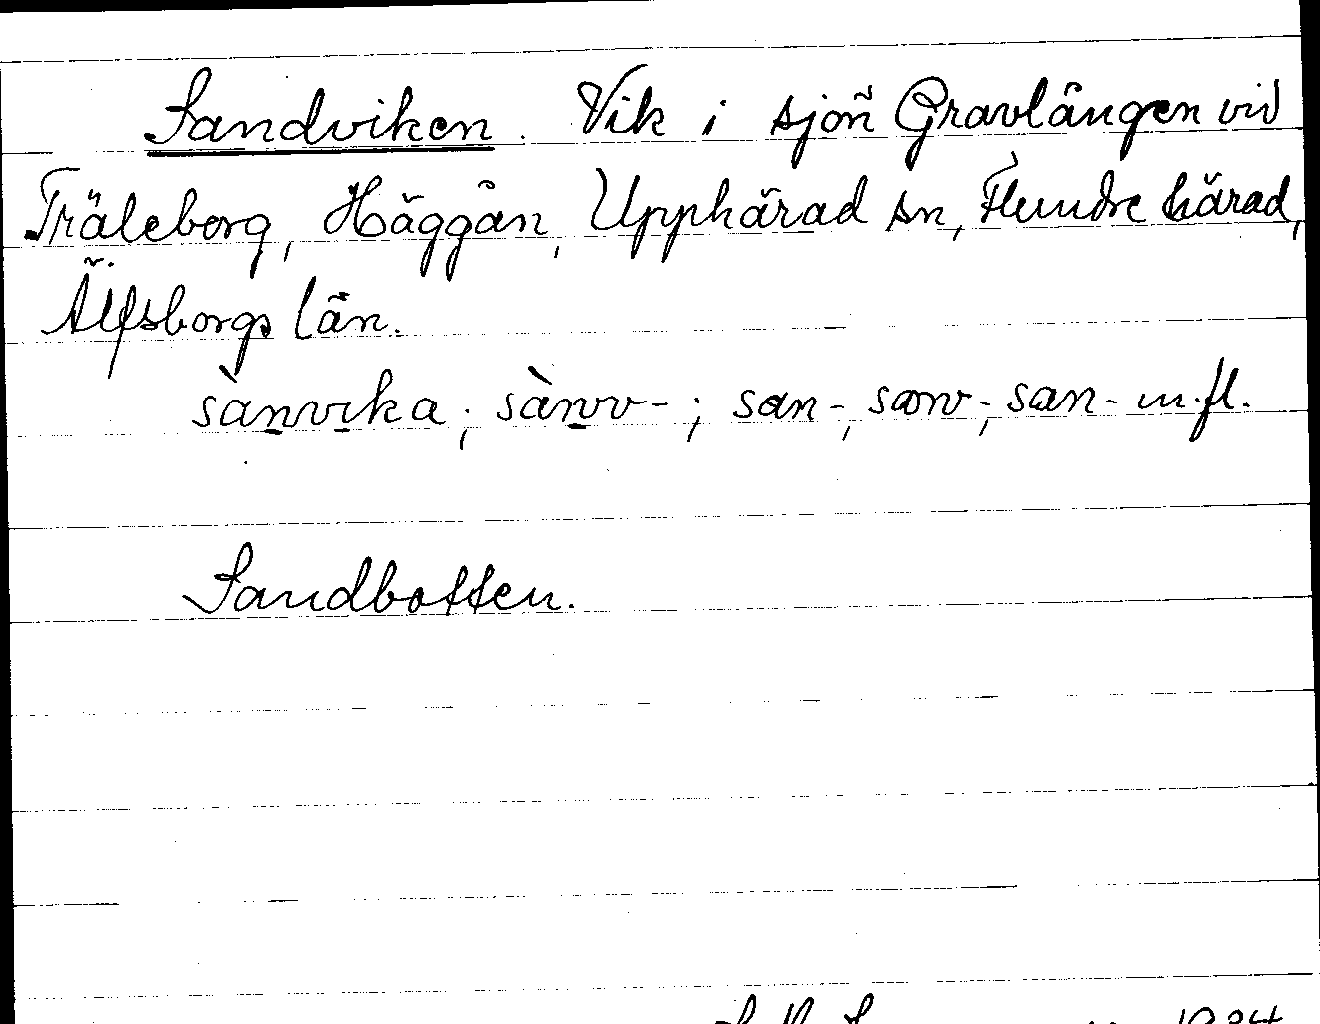 Sandviken. Vik i sjön Gravlången vid
Träleborg, Häggån, Upphärad sn, Flundre härad,
Älfsborgs län.
sànvika; sànv-; san-, sanv-, san- m.fl.
Sandbotten.